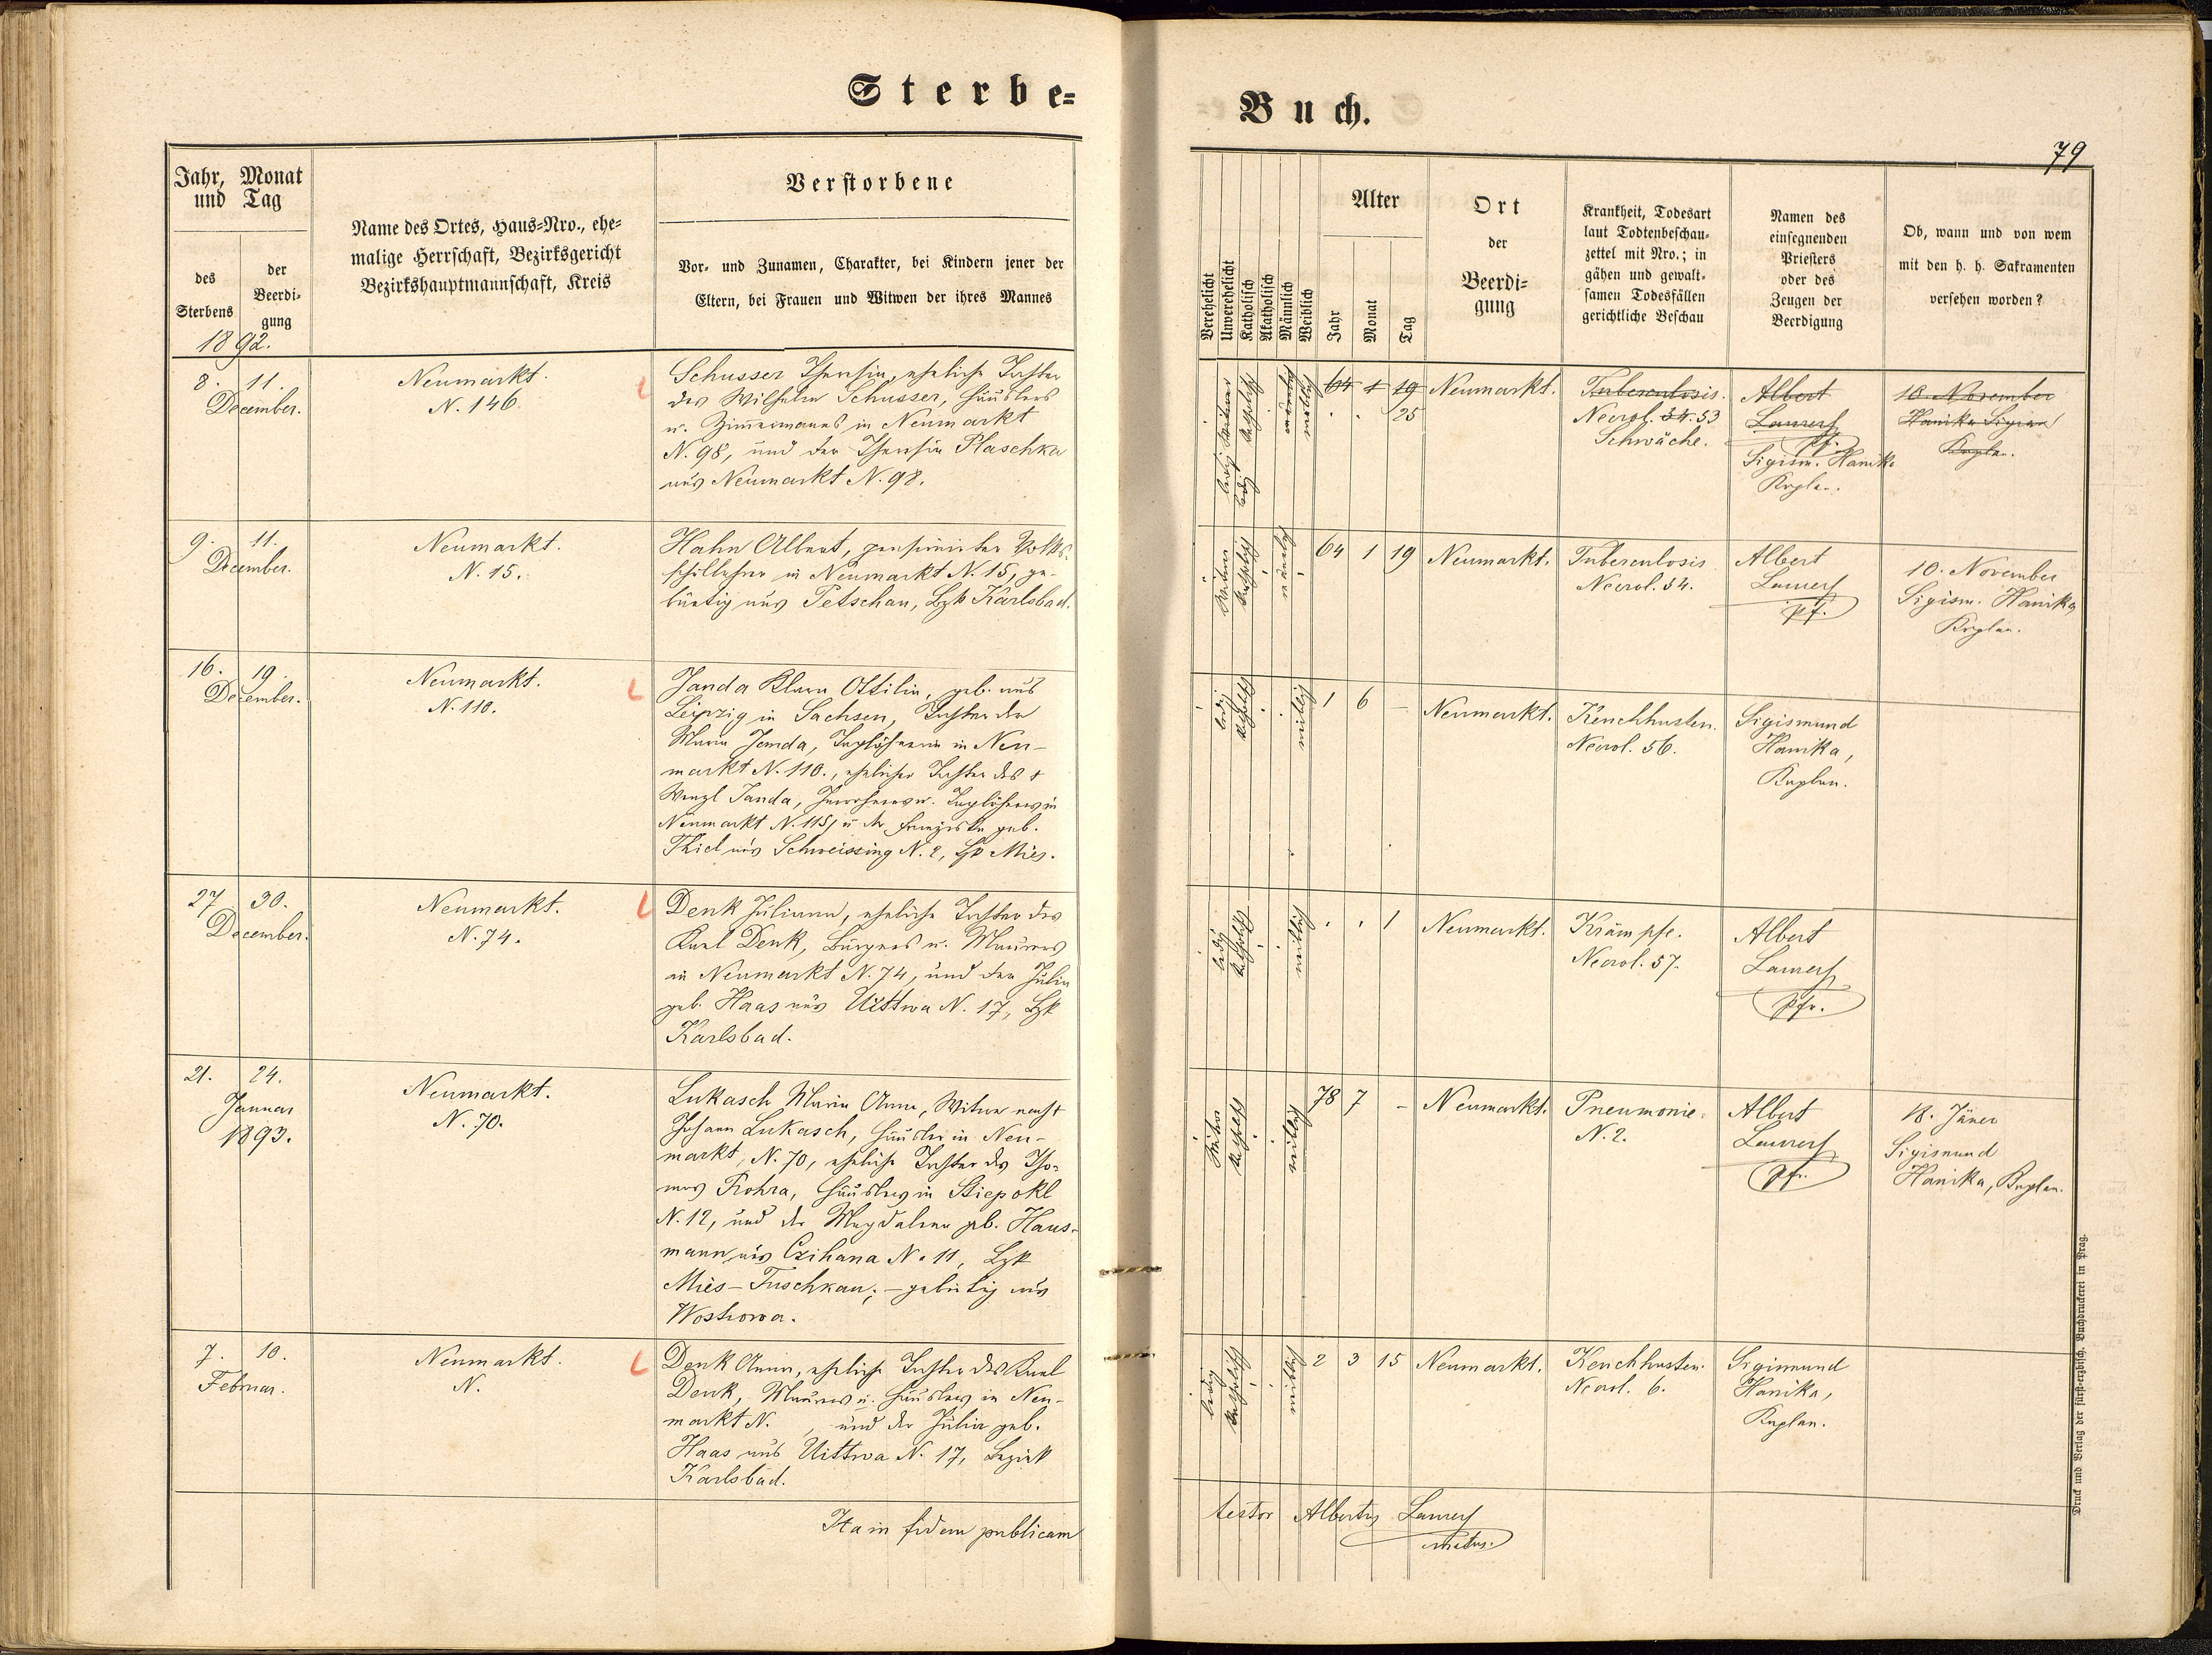 Sterbe=
Buch.
79
Jahr, Monat
und Tag
des
Sterbens
der
Beerdi-
gung
1892.
Name des Ortes, Haus=Nro., ehe=
malige Herrschaft, Bezirksgericht
Bezirkshauptmannschaft, Kreis
Verstorbene
Vor- und Zunamen, Charakter, bei Kindern jener der
Eltern, bei Frauen und Witwen der ihres Mannes
Verehelicht
Unverehelicht
Katholisch
Akatholisch
Männlich
Weiblich
Alter
Jahr
Monat
Tag
Ort
der
Beerdi=
gung
Krankheit, Todesart
laut Todtenbeschau-
zettel mit Nro.; in
gähen und gewalt-
samen Todesfällen
gerichtliche Beschau
Namen des
einsegnenden
Priesters
oder des
Zeugen der
Beerdigung
Ob, wann und von wem
mit den h. h. Sakramenten
versehen worden?
8. 11.
December.
Neumarkt.
N. 146.
Schusser Theresia, eheliche Tochter
des Wilhelm Schusser, Häuslers
u. Zimmermanns in Neumarkt
N. 98, und der Theresia Plaschka
aus Neumarkt N. 98.
ledig
katholisch
weiblich
64 1 19
25
Neumarkt.
Tuberculosis.
Necrol. 34. 53
Schwäche.
Albert
Laurer
Pf.
Sigism. Hanika
Kaplan.
10. November
Hanika Sigism
Kaplan.
9. 11.
December.
Neumarkt.
N. 15.
Hahn Albert, pensionirter Volks-
schullehrer in Neumarkt N. 15, ge-
bürtig aus Petschau, Bzk Karlsbad.
Witwer
katholisch
männlich
64 1 19
Neumarkt.
Tuberculosis
Necrol. 54.
Albert
Laurer
Pf.
10. November
Sigism. Hanika,
Kaplan.
16. 19.
December.
Neumarkt.
N. 110.
Janda Klara Ottilia, geb. aus
Leipzig in Sachsen, Tochter der
Maria Janda, Taglöhnerin in Neu-
markt N. 110., ehelicher Tochter des †
Wenzl Janda, Taglöhners in
Neumarkt N. 115, u. der Franziska geb.
Thiel aus Schweissing N. 2, Bzk Mies.
ledig
katholisch
weiblich
1 6 –
Neumarkt.
Keuchhusten.
Necrol. 56.
Sigismund
Hanika,
Kaplan.
27. 30.
December.
Neumarkt.
N. 74.
Denk Juliana, eheliche Tochter des
Karl Denk, Bürgers u. Maurers
in Neumarkt N. 74, und der Julia
geb. Haas aus Uittwa N. 17, Bzk
Karlsbad.
ledig
katholisch
weiblich
1
Neumarkt.
Krämpfe.
Necrol. 57.
Albert
Laurer
Pfr.
21. 24.
Januar
1893.
Neumarkt.
N. 70.
Lukasch Maria Anna, Witwe nach †
Johann Lukasch, Häusler in Neu-
markt, N. 70, eheliche Tochter des Tho-
mas Prohra, Häuslers in Stiepokl
N. 12, und der Magdalena geb. Haus-
mann aus Czihana N. 11, Bzk
Mies-Tuschkau; – gebürtig aus
Wostrowa.
Witwe
katholisch
weiblich
78 7 –
Neumarkt.
Pneumonie.
N. 2.
Albert
Laurer
Pfr.
18. Jäner
Sigismund
Hanika, Kaplan.
7. 10.
Februar.
Neumarkt.
N.
Denk Anna, eheliche Tochter des Karl
Denk, Maurers u. Häuslers in Neu-
markt N. , und der Julia geb.
Haas aus Uittwa N. 17, Bezirk
Karlsbad.
ledig
katholisch
weiblich
2 3 15
Neumarkt.
Keuchhusten.
Necrol. 6.
Sigismund
Hanika,
Kaplan.
Ita in fidem publicam
testor Albertus Laurer
Druck und Verlag der fürst-erzbisch. Buchdruckerei in Prag.